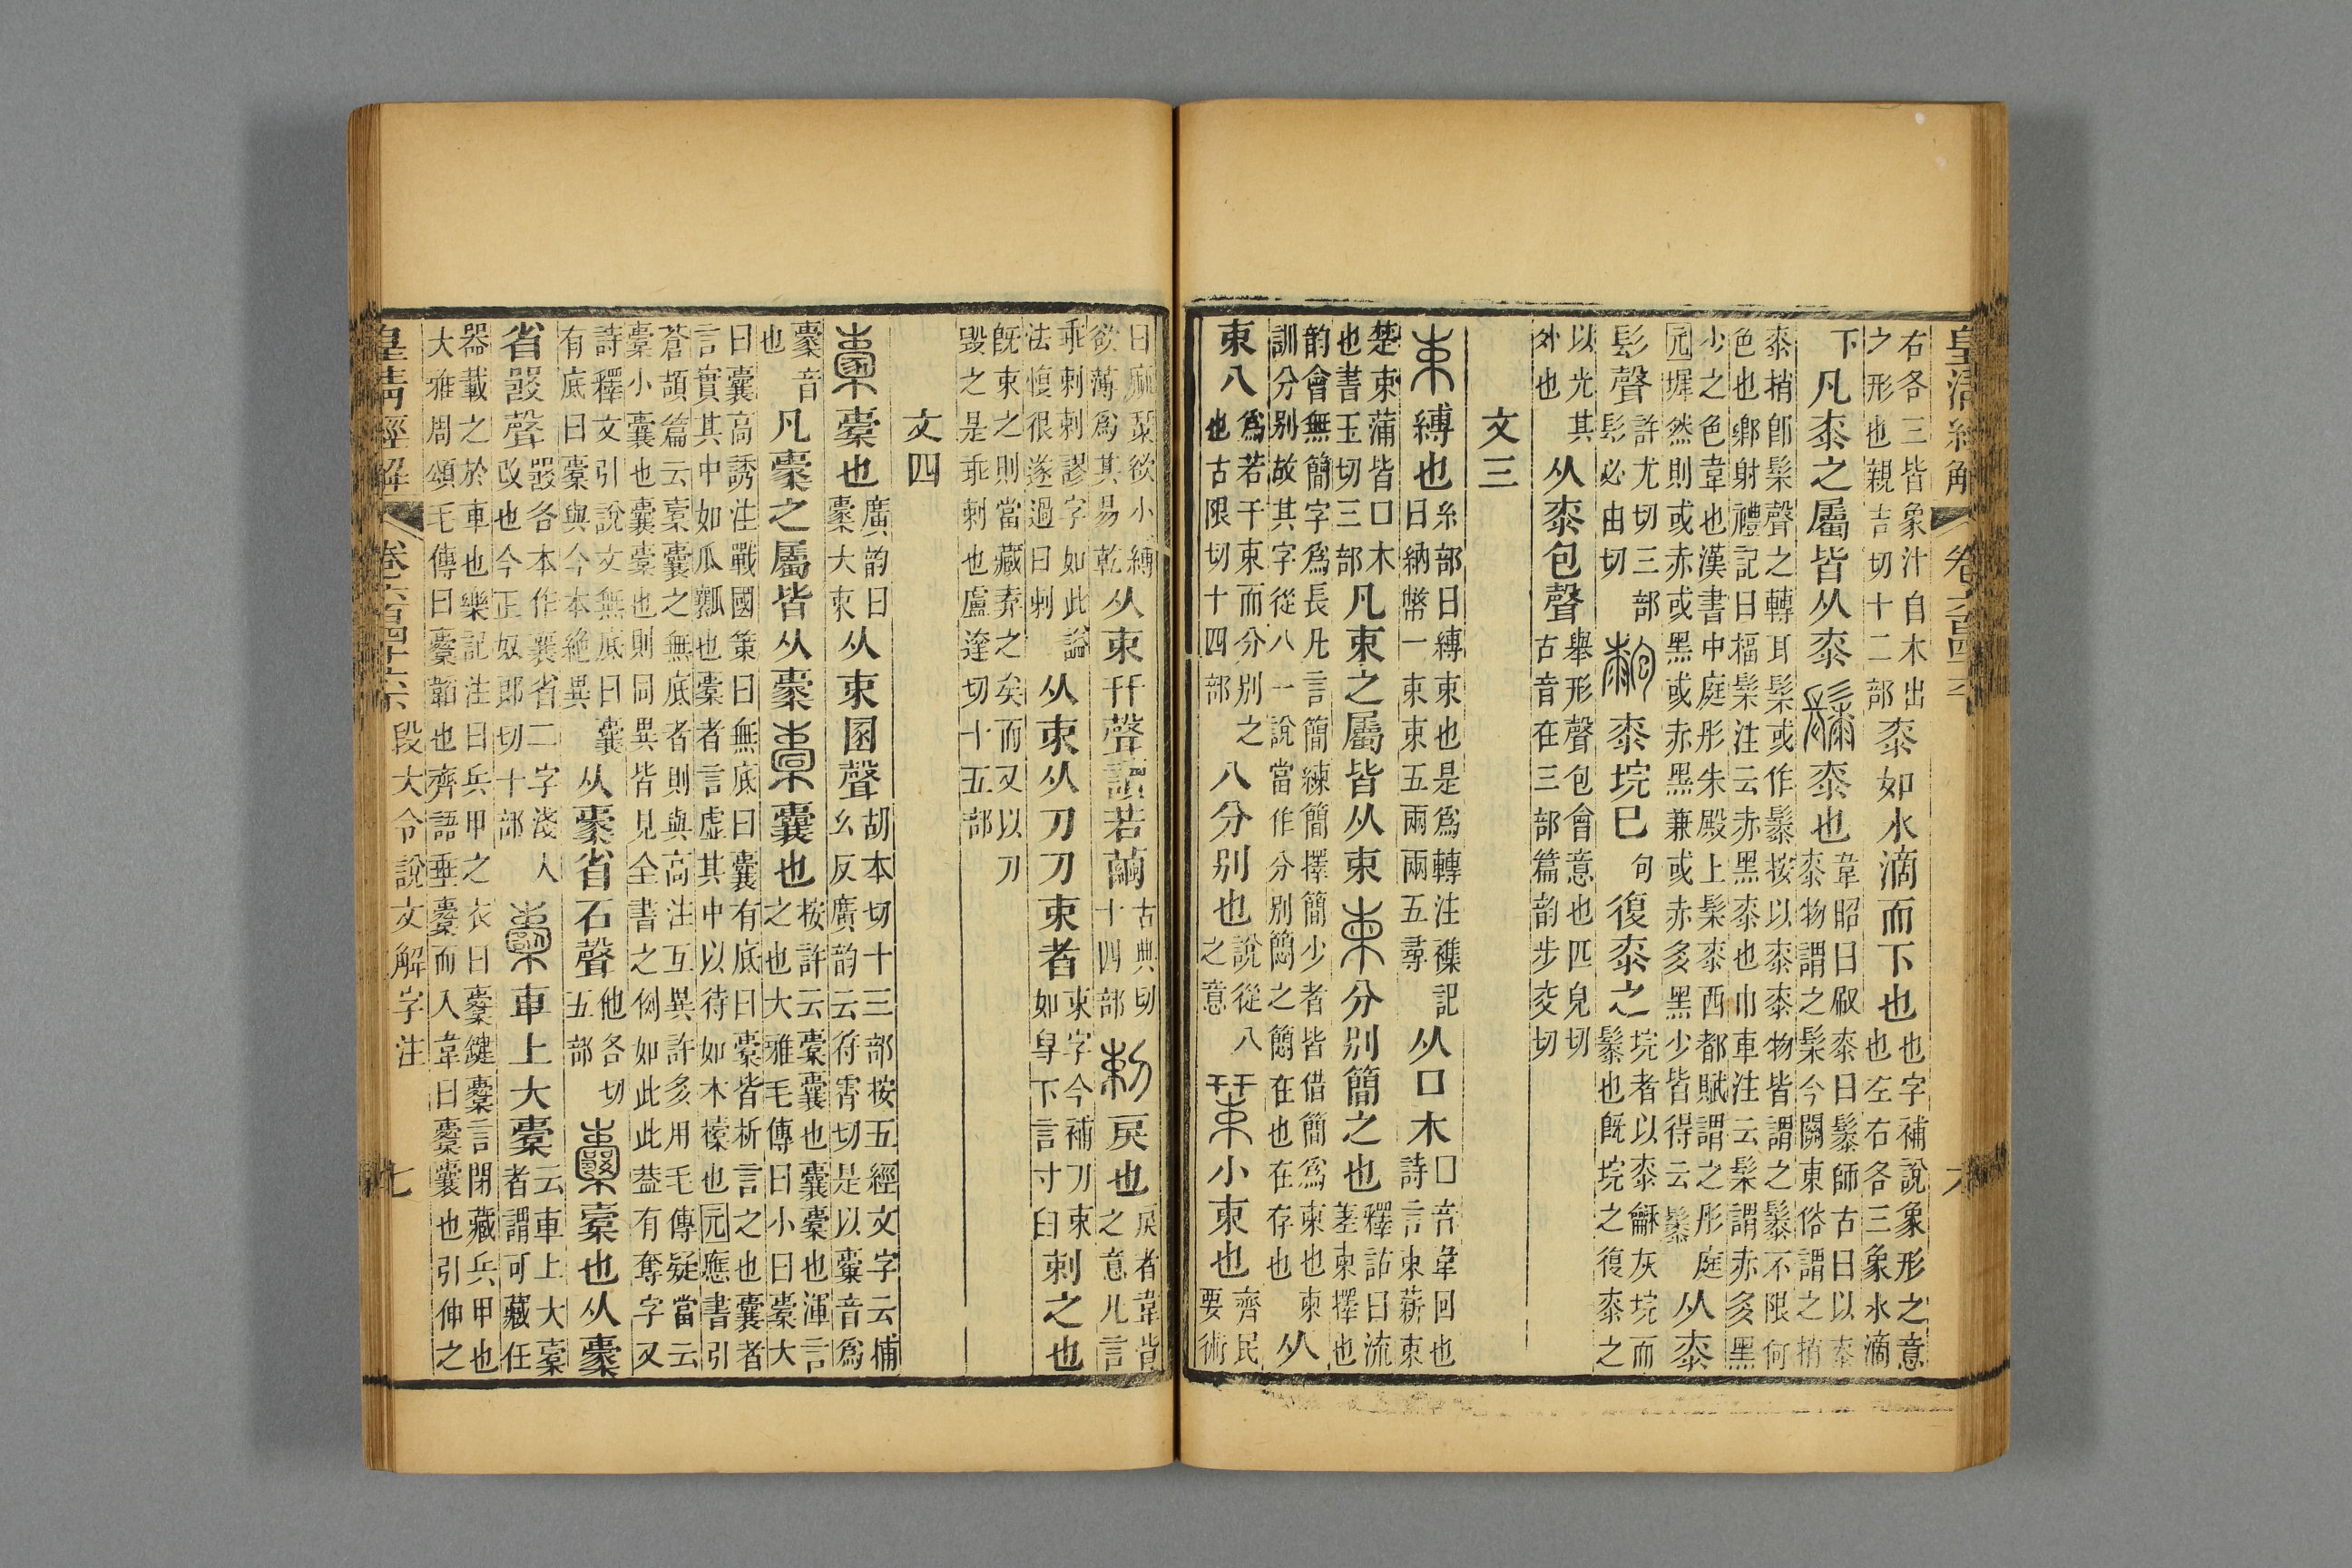 皇清經解 卷六百四十六 六
右各三皆象汁自木出
之形也親吉切十二部
桼如水滴而下也
也字補說象形之意
也左右各三象水滴
下凡桼之屬皆从桼
桼也
韋昭曰㕞桼曰鬃師古曰以桼
桼物謂之髹今關東俗謂之捎
桼捎卽髹聲之轉耳髹或作鬃按以桼桼物皆謂之鬃不限何
色也鄉射禮記曰楅髹注云赤黑桼也巾車注云髹謂赤多黑
少之色韋也漢書中庭彤朱殿上髹桼西都賦謂之彤庭
元墀然則或赤或黑或赤黑兼或赤多黑少皆得云鬃
从桼
髟聲
許尤切三部
髟必由切
桼垸巳
句
復桼之
垸者以桼龢灰垸而
鬃也旣垸之復桼之
以光其
外也
从桼包聲
舉形聲包會意也匹皃切
古音在三部篇韵步交切
文三
束縛也
糸部曰縛束也是爲轉注襍記
曰納幣一束束五兩兩五尋
从囗木
囗音韋回也
詩言束薪束
楚束蒲皆囗木
也書玉切三部
凡束之屬皆从束柬分別簡之也
釋詁曰流
差柬擇也
韵會無簡字爲長凡言簡練簡擇簡少者皆借簡爲柬也柬
訓分別故其字從八一說當作分別簡之簡在也在存也
从
束八
爲若干束而分別之
也古限切十四部
八分別也
說從八
之意
小束也
齊民
要術
曰麻菉欲小縛
欲薄爲其易乾
从束幵聲讀若繭
古典切
十四部
剌戾也
戾者韋背
之意凡言
乖剌剌謬字如此謚
法愎很遂過曰剌
从束从刀刀束者
束字今補刀束
如𠬪下言寸𦥑
剌之也
旣束之則當藏弆之矣而又以刀
毀之是乖剌也盧達切十五部
文四
㯻㯻也
廣韵曰
㯻大束
从束圂聲
胡本切十三部按五經文字云捕
幺反廣韵云符霄切是以橐音爲
㯻音
也
凡㯻之屬皆从㯻橐囊也
按許云橐囊也囊橐也渾言
之也大雅毛傳曰小曰橐大
曰囊高誘注戰國策曰無底曰囊有底曰橐皆析言之也囊者
言實其中如瓜瓤也橐者言虛其中以待如木㯻也元應書引
蒼頡篇云橐囊之無底者則與高注互異許多用毛傳疑當云
橐小囊也囊橐也則同異皆見全書之例如此此葢有奪字又
詩釋文引說文無底曰囊
有底曰橐與今本絕異
从㯻省石聲
他各切
五部
囊橐也从㯻
省㗊聲
㗊各本作襄省二字淺人
改也今正奴郎切十部
櫜車上大橐
云車上大橐
者謂可藏任
器載之於車也樂記注曰兵甲之衣曰櫜鍵櫜言閉藏兵甲也
大雅周頌毛傳曰櫜韜也齊語垂櫜而入韋曰櫜囊也引伸之
皇清經解 卷六百四十六 段大令說文解字注 七